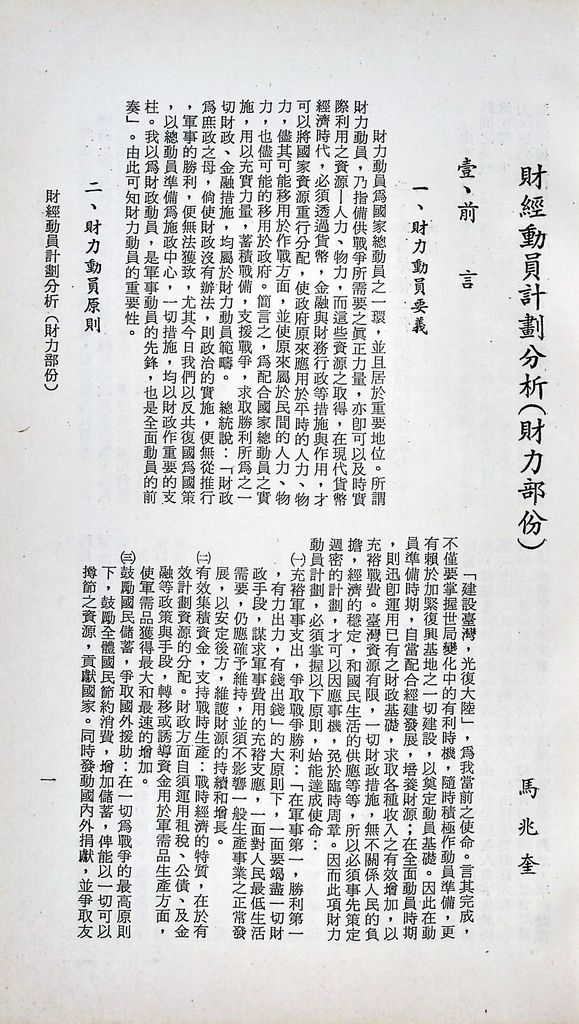 財經動員計劃分析(財力部份)
馬兆奎
壹、前言
一、財力動員要義
財力動員為國家總動員之一環，並且居於重要地位。所謂
財力動員，乃指備供戰爭所需要之眞正力量，亦卽可以及時實
際利用之資源—人力、物力，而這些資源之取得，在現代貨幣
經濟時代，必須透過貨幣，金融與財務行政等措施與作用，才
可以將國家資源重行分配，使政府原來應用於平時的人力、物
力，儘其可能移用於作戰方面，並使原來屬於民間的人力、物
力，也儘可能的移用於政府。簡言之，為配合國家總動員之實
施，用以充實力量，蓄積戰備，支援戰爭，求取勝利所為之一
切財政、金融措施，均屬於財力動員範疇。　總統說：「財政
為庶政之母，倘使財政沒有辦法，則政治的實施，便無從推行
，軍事的勝利，便無法獲致，尤其今日我們以反共復國為國策
，以總動員準備為施政中心，一切措施，均以財政作重要的支
柱。我以為財政動員，是軍事動員的先鋒，也是全面動員的前
奏」。由此可知財力動員的重要性。
二、財力動員原則
「建設臺灣，光復大陸」，為我當前之使命。言其完成，
不僅要掌握世局變化中的有利時機，隨時積極作動員準備，更
有賴於加緊復興基地之一切建設，以奠定動員基礎。因此在動
員準備時期，自當配合經建發展，培養財源；在全面動員時期
，則迅卽運用已有之財政基礎，求取各種收入之有效增加，以
充裕戰費。臺灣資源有限，一切財政措施，無不關係人民的負
擔，經濟的穩定，和國民生活的供應等等，所以必須事先策定
週密的計劃，才可以因應事機，免於臨時周章。因而此項財力
動員計劃，必須掌握以下原則，始能達成使命：
㈠充裕軍事支出，爭取戰爭勝利：「在軍事第一，勝利第一
，有力出力，有錢出錢」的大原則下，一面要竭盡一切財
政手段，謀求軍事費用的充裕支應，一面對人民最低生活
需要，仍應確予維持，並須不影響一般生產事業之正常發
展，以安定後方，維護財源的持續和增長。
㈡有效集積資金，支持戰時生產：戰時經濟的特質，在於有
效計劃資源的分配。財政方面自須運用租稅、公債、及金
融等政策與手段，轉移或誘導資金用於軍需品生產方面，
使軍需品獲得最大和最速的增加。
㈢鼓勵國民儲蓄，爭取國外援助：在一切為戰爭的最高原則
下，鼓勵全體國民節約消費，增加儲蓄，俾能以一切可以
撙節之資源，貢獻國家。同時發動國內外捐獻，並爭取友
財經動員計劃分析(財力部份)
一